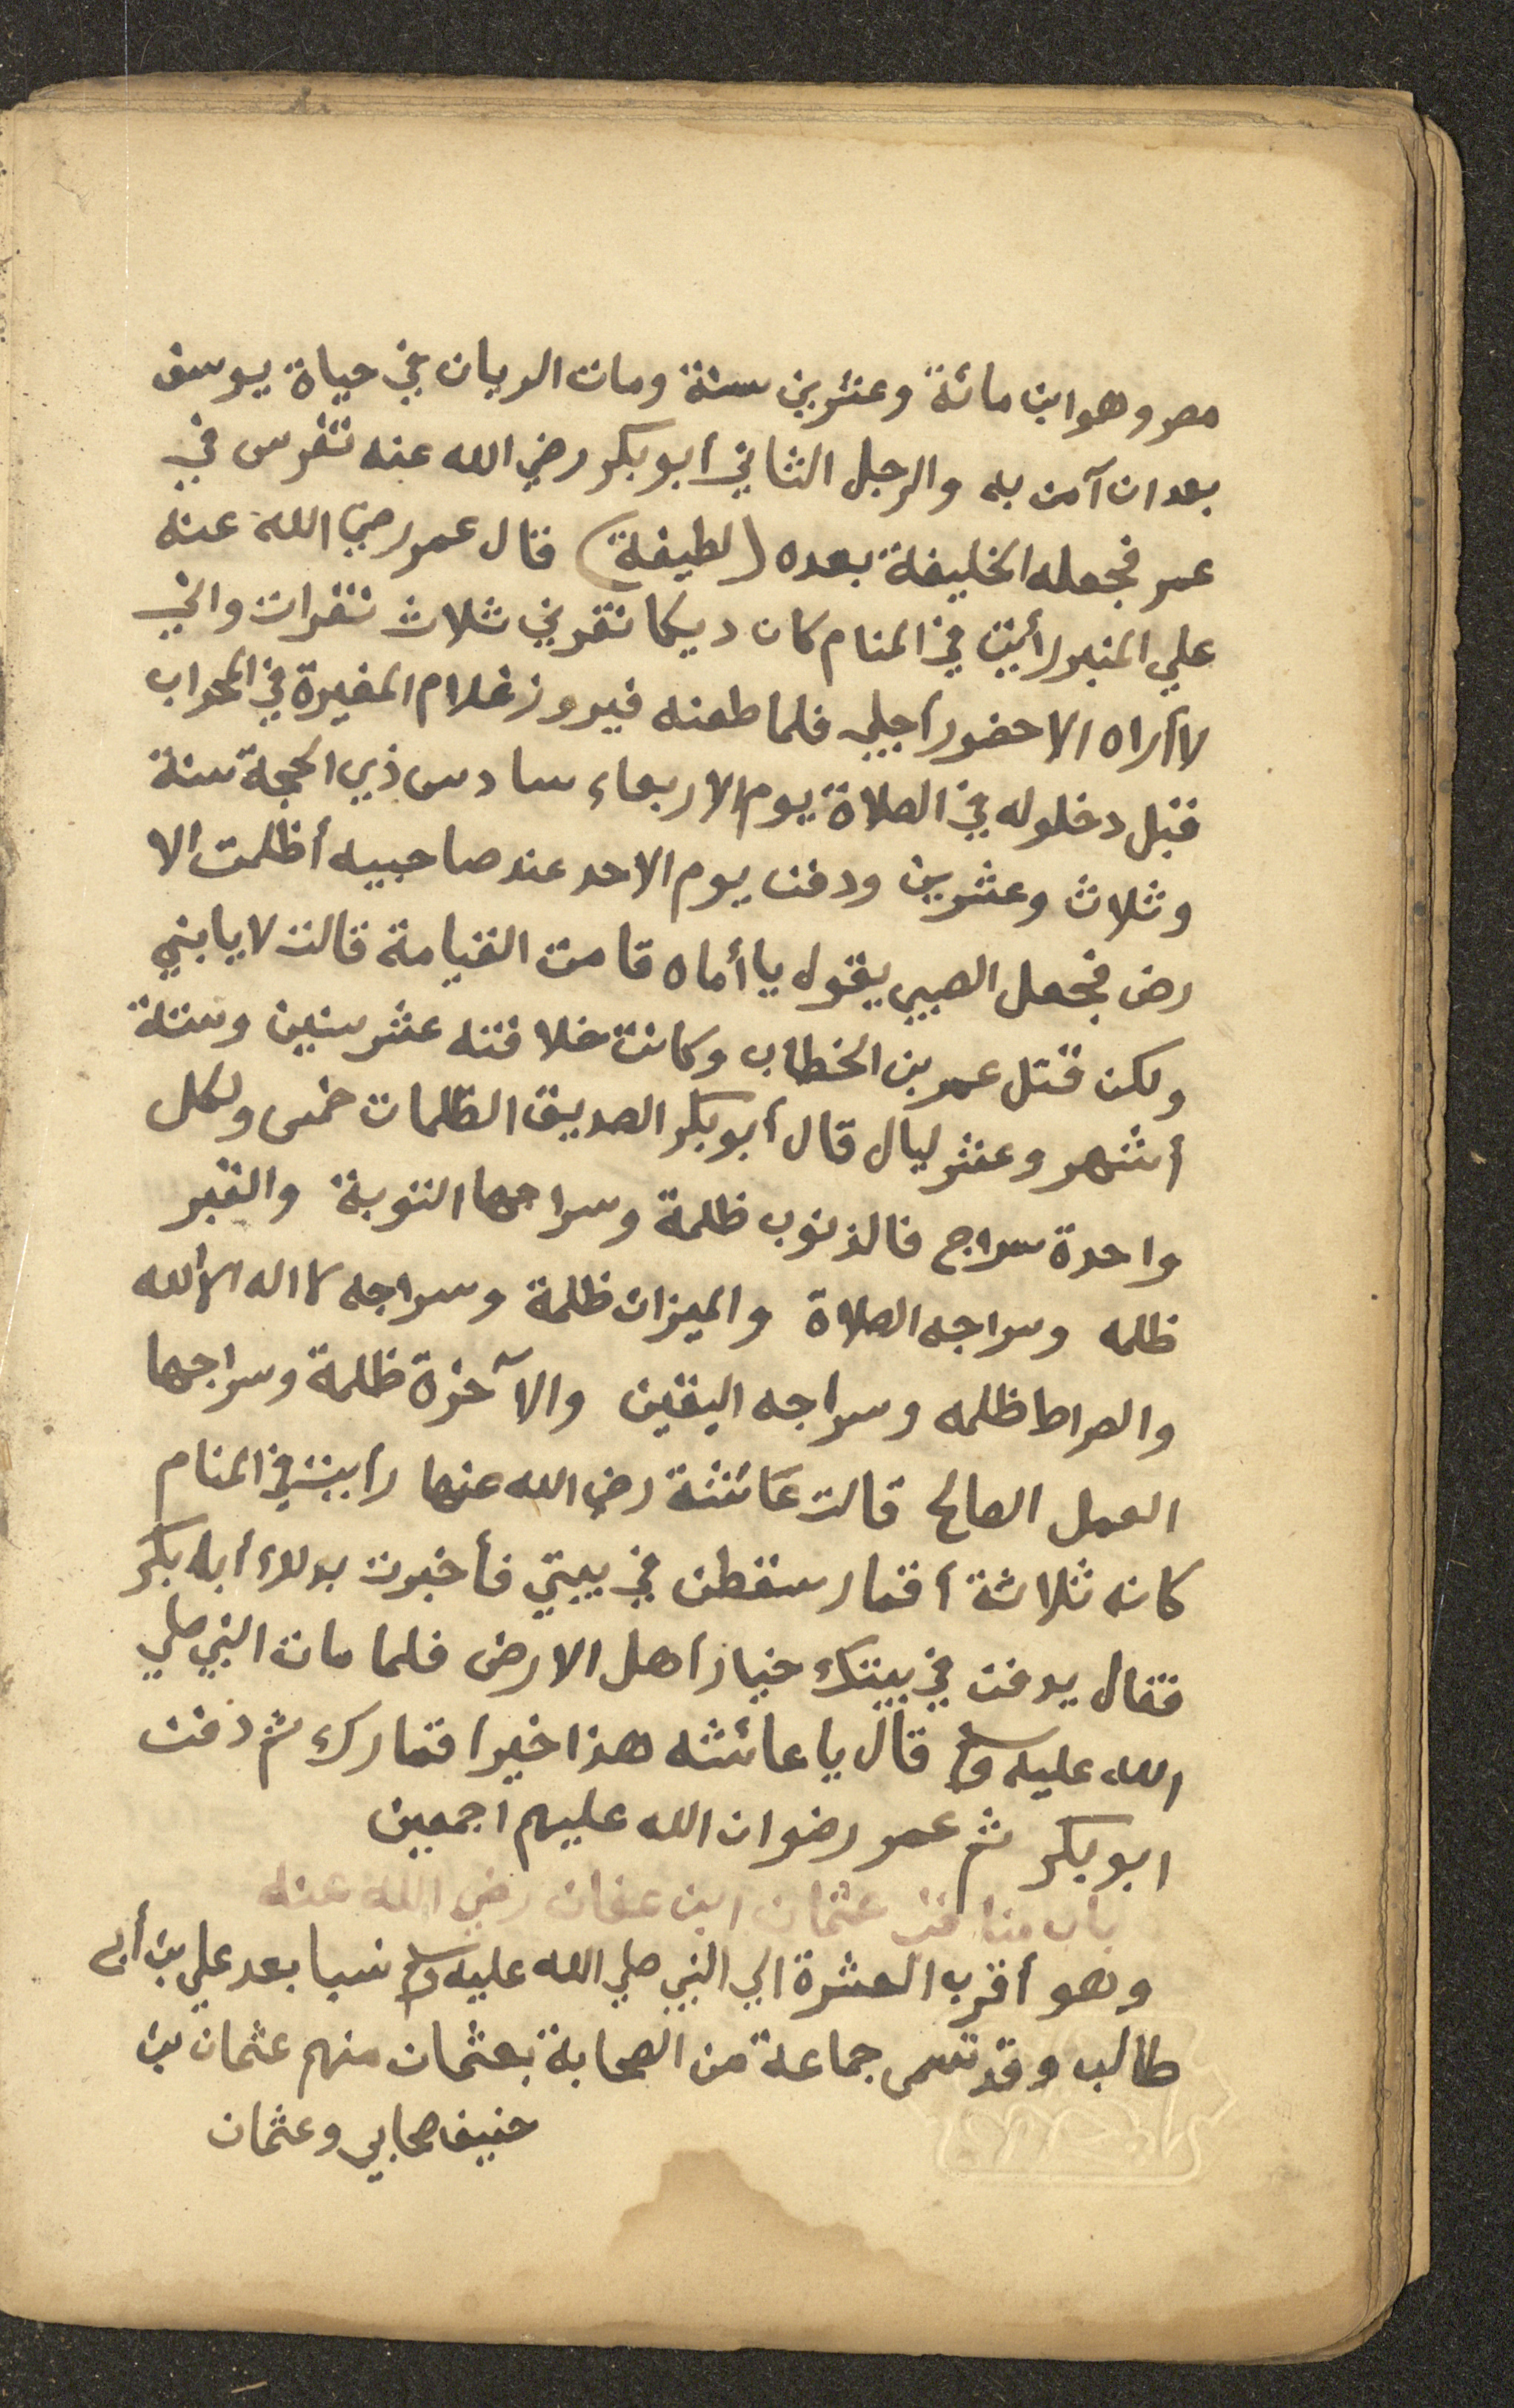 مصر وهو ابن مائة وعشرين سنة ومات الريان في حياة يوسف
بعد ان آمن به والرجل الثاني أبو بكر رضي الله عنه تفرس في
عمر فجعله الخليفة بعده (لطيفة) قال عمر رضي الله عنه
علي المنبر رأيت في المنام كان ديكا نقرني ثلاث نقرات واني
لا أراه الا حضور أجلي فلما طعنه فيروز غلام المغيرة في المحراب
قبل دخلوله في الصلاة يوم الاربعاء سادس ذي الحجة سنة
وثلاث وعشرين ودفن يوم الاحد عند صاحبيه أظلمت الا
رض فجعل الصبي يقول يا أماه قامت القيامة قالت لا يا بني
ولكن قتل عمر بن الخطاب وكانت خلافته عشر سنين وستة
أشهر وعشر ليال قال أبو بكر الصديق الظلمات خمس ولكل
واحدة سراج فالذنوب ظلمة وسراجها التوبة والقبر
ظلمه وسراجه الصلاة والميزان ظلمة وسراجه لا اله الا الله
والصراط ظلمه وسراجه اليقين والآخرة ظلمة وسراجها
العمل الصالح قالت عائشة رضي الله عنها رأيت في المنام
كانه ثلاثة أقمار سقطن في بيتي فأخبرت بذلك أبا بكر
فقال يدفن في بيتك خيار أهل الارض فلما مات النبي صلي
الله عليه وسلم قال يا عائشه هذا خير اقمارك ثم دفن
ابو بكر ثم عمر رضوان الله عليهم اجمعين
باب مناقب عثمان ابن عفان رضي الله عنه
وهو أقرب العشرة الي النبي صلي الله عليه وسلم نسبا بعد علي بن أبي
طالب وقد تسمى جماعة من الصحابة بعثمان منهم عثمان بن
حنيف صحابي وعثمان